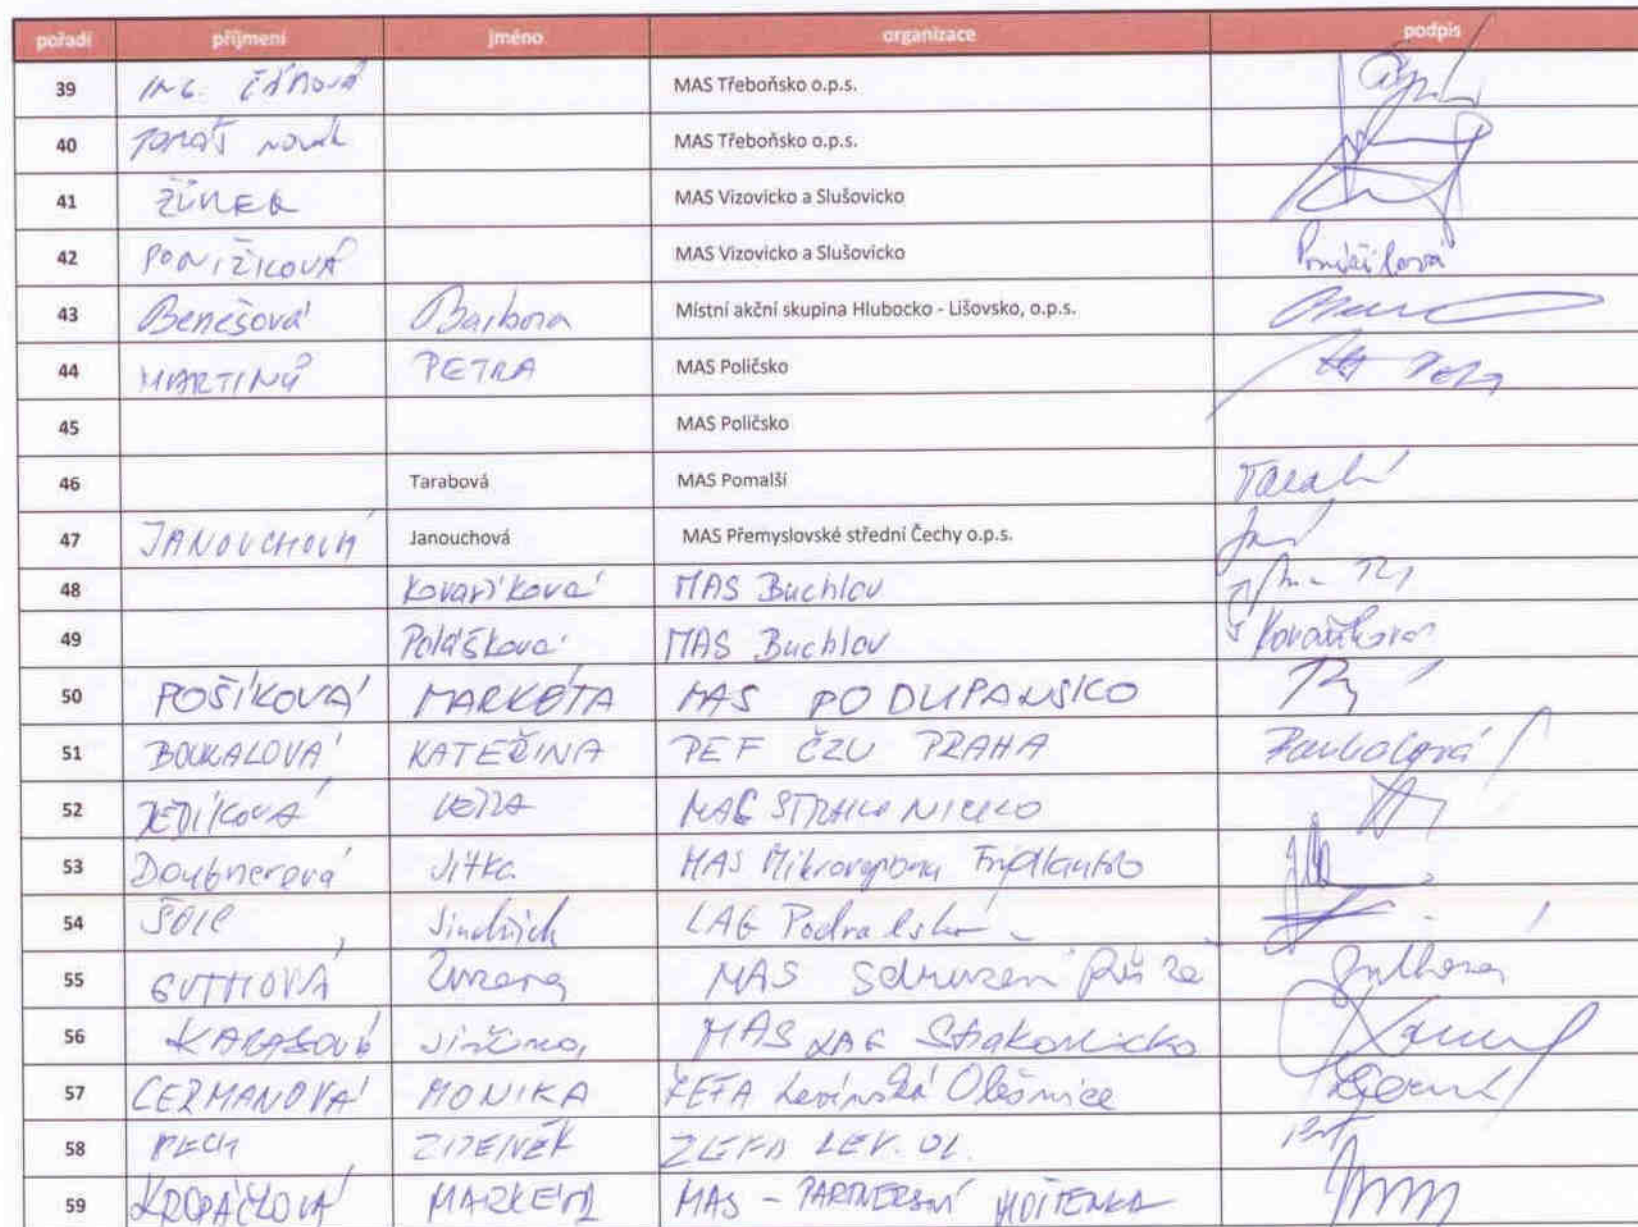 pořadí příjmení jméno organizace podpis
39 ING. MAS Třeboňsko o.p.s.
40 Novák MAS Třeboňsko o.p.s.
41 MAS Vizovicko a Slušovicko
42 PONÍŽILOVÁ MAS Vizovicko a Slušovicko
43 Benešová Barbora Místní akční skupina Hlubocko - Lišovsko, o.p.s.
44 MARTINŮ PETRA MAS Poličsko
45 MAS Poličsko
46 Tarabová MAS Pomalší
47 JANOUCHOVÁ Janouchová MAS Přemyslovské střední Čechy o.p.s.
48 Kovaříková MAS Buchlov
49 Polášková MAS Buchlov Kovaříková
50 POŠÍKOVÁ MARKÉTA MAS PODLIPANSKO
51 BOUKALOVÁ KATEŘINA PEF ČZU PRAHA
52 MAS
53 Doubnerová Jitka MAS Mikroregionu Frýdlantsko
54 Jindřich LAG Podralsko
55 GUTHOVÁ Zuzana MAS Sdružení Růže
56 MAS LAG Strakonicko
57 CERMANOVÁ MONIKA ZEFA Levínská Olešnice
58 PECH ZDENĚK ZEFA LEV. OL.
59 KROPÁČKOVÁ MARKETA MAS - PARTNERSTVÍ MOŠTĚNKA